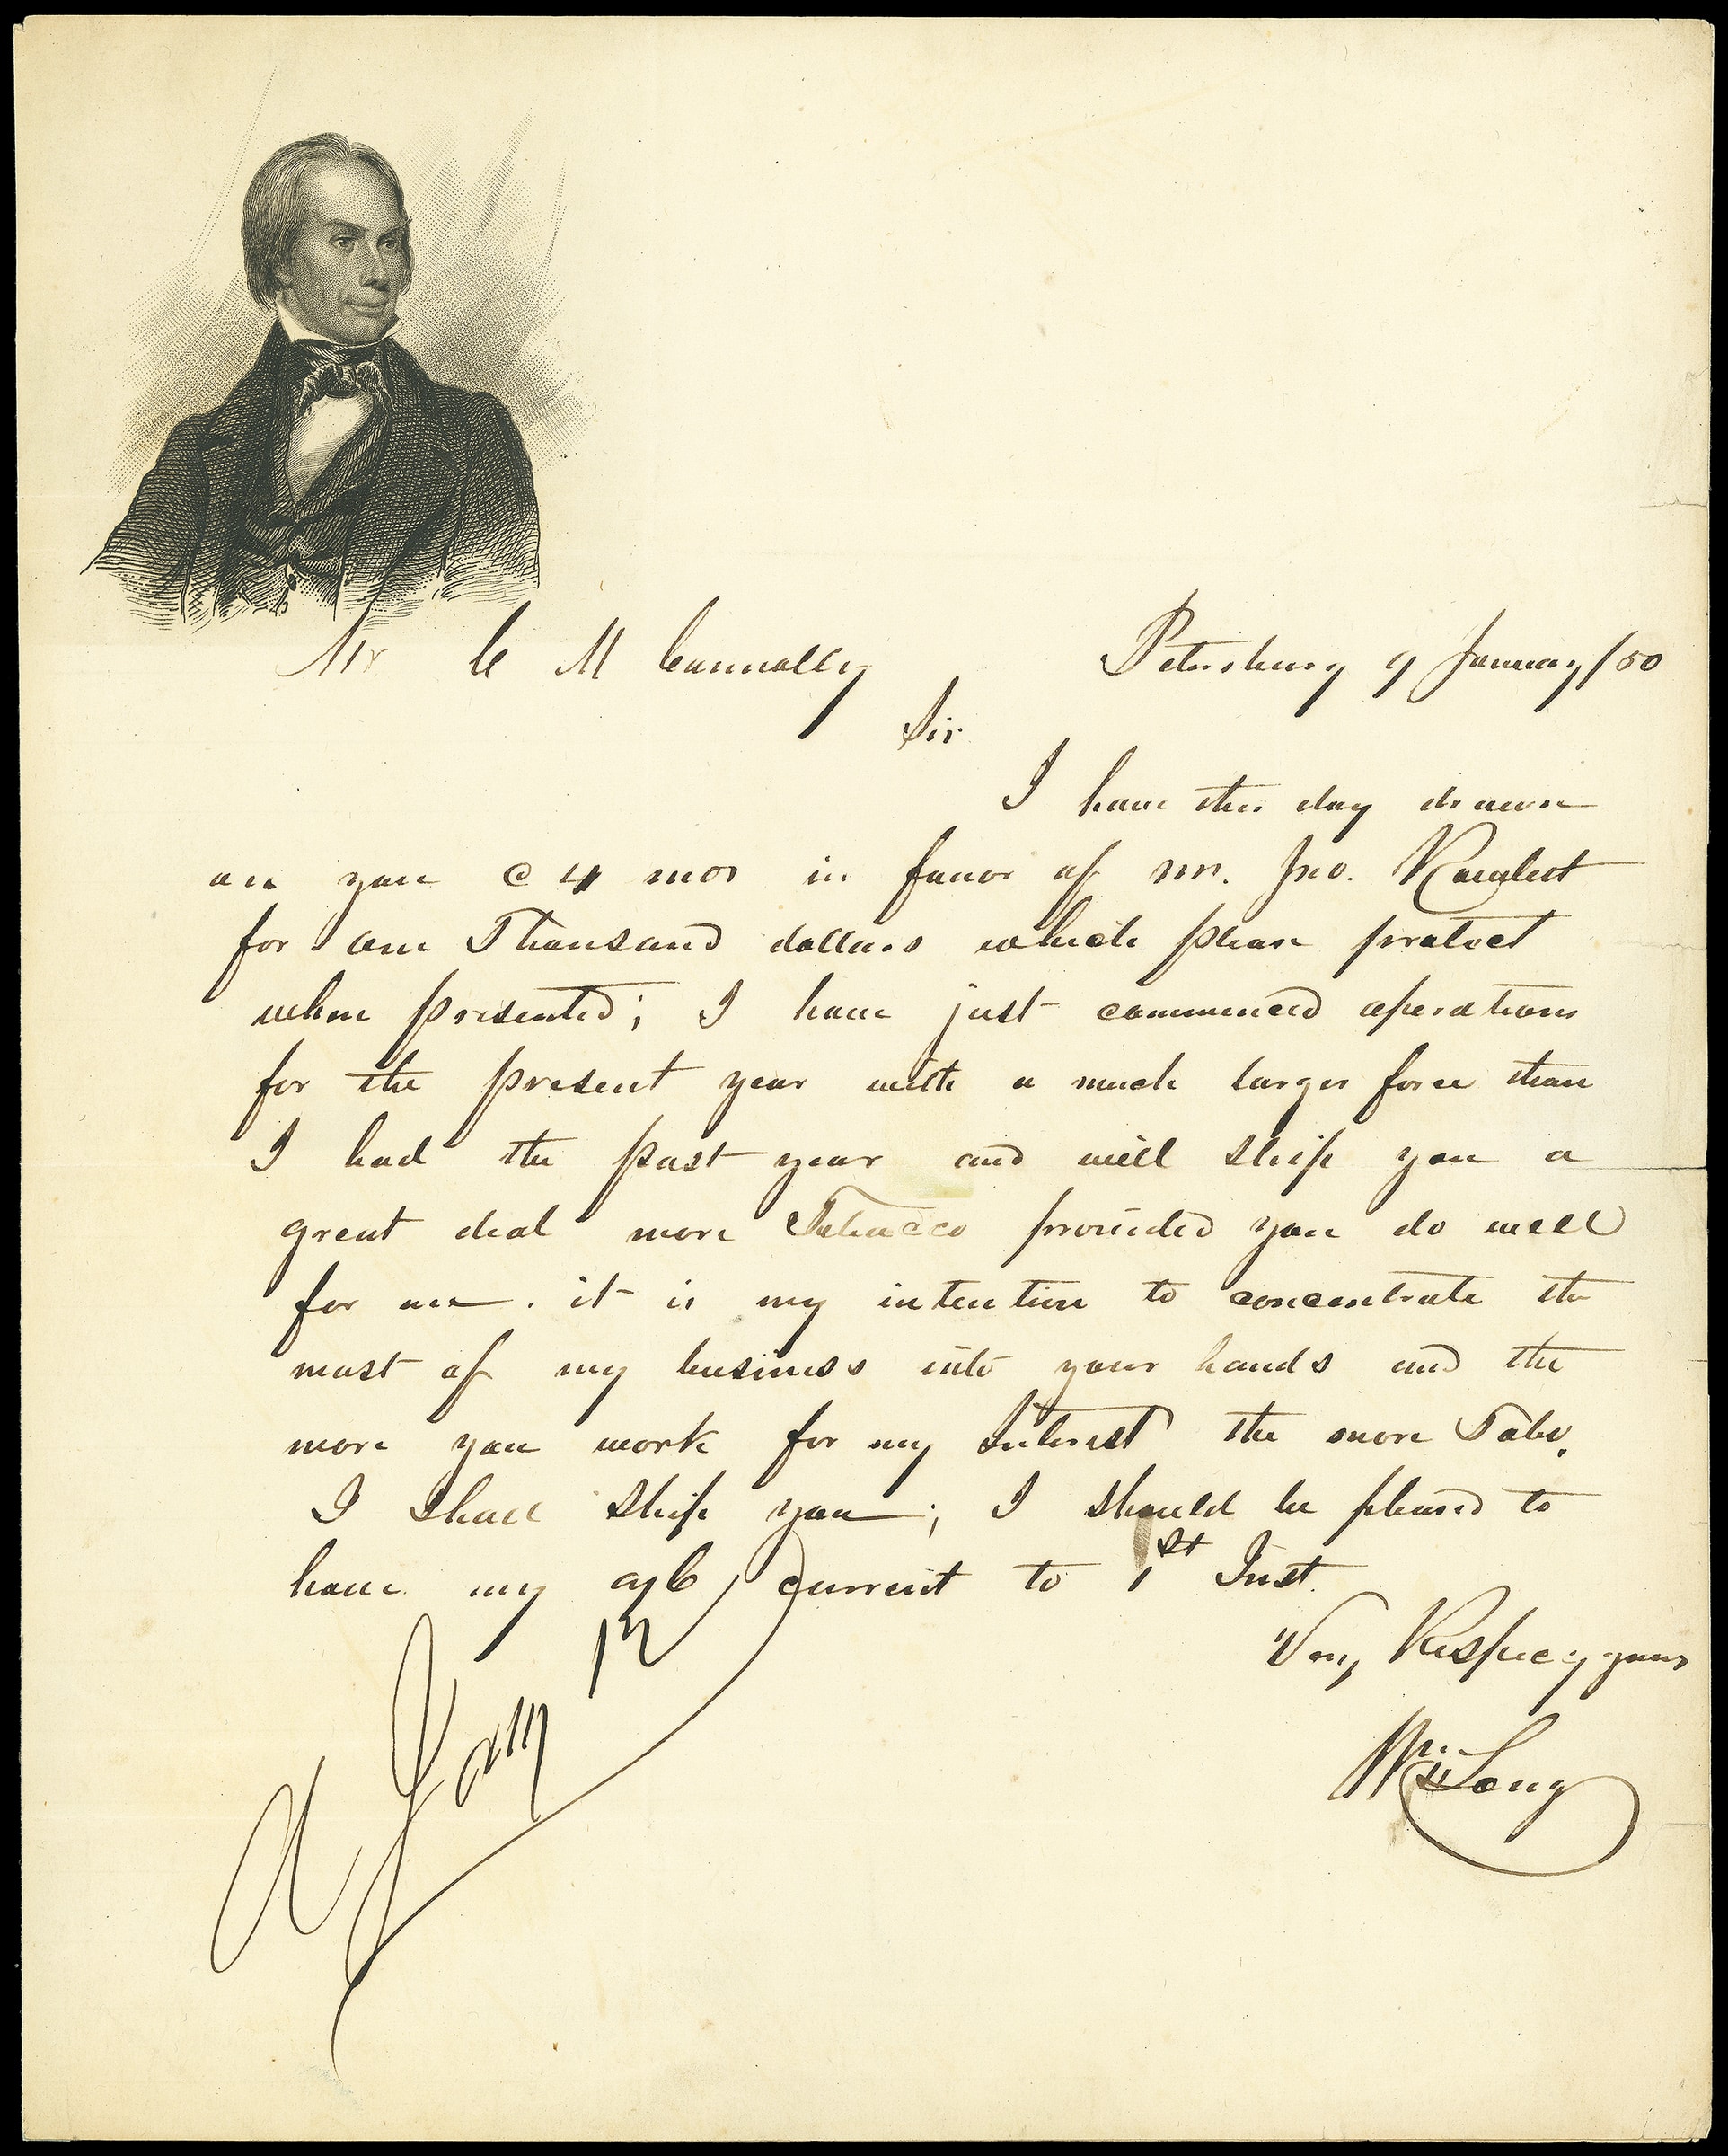 Mr C M Connally Petersburg 9 January/50
Sir
I have this day drawn
on you @ 4 mos in favor of Mr. Jno. Rowlett
for one Thousand dollars which please protect
when presented; I have just commenced operations
for the present year with a much larger force than
I had the past year and will ship you a
great deal more Tobacco provided you do well
for me. it is my intention to concentrate the
most of my business into your hands and the
more you work for my Interest the more Tobo.
I shall ship you; I should be pleased to
have my a/c current to 1st Inst.
Very Respecy yours
Wm Long
A Jany 12